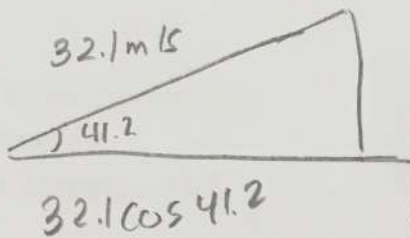 32.1 m/s
41.2
32.1 cos 41.2